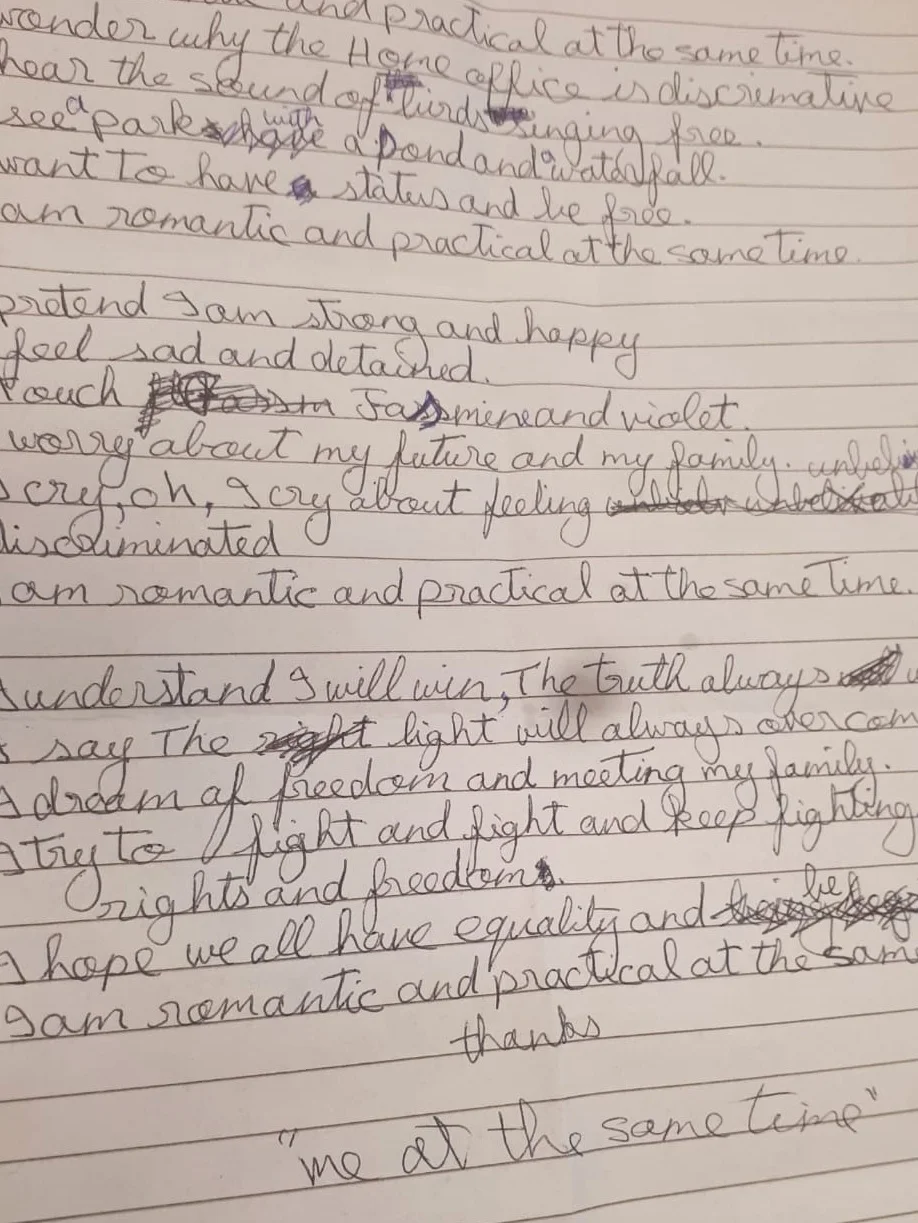 and practical at the same time.
wonder why the Home office is discremative
hear the sound of birds singing free.
see a park with a pond and a waterfall.
want to have status and be free.
am romantic and practical at the same time.
pretend I am strong and happy
feel sad and detained.
touch Jasmine and violet.
worry about my future and my family.
I cry, oh, I cry about feeling
discriminated
am romantic and practical at the same Time.
I understand I will win, The truth always
I say The light will always overcom
I dream of freedom and meeting my family.
I try to fight and fight and keep fighting
rights and freedom.
I hope we all have equality and be
I am romantic and practical at the sam
thanks
"me at the same time"